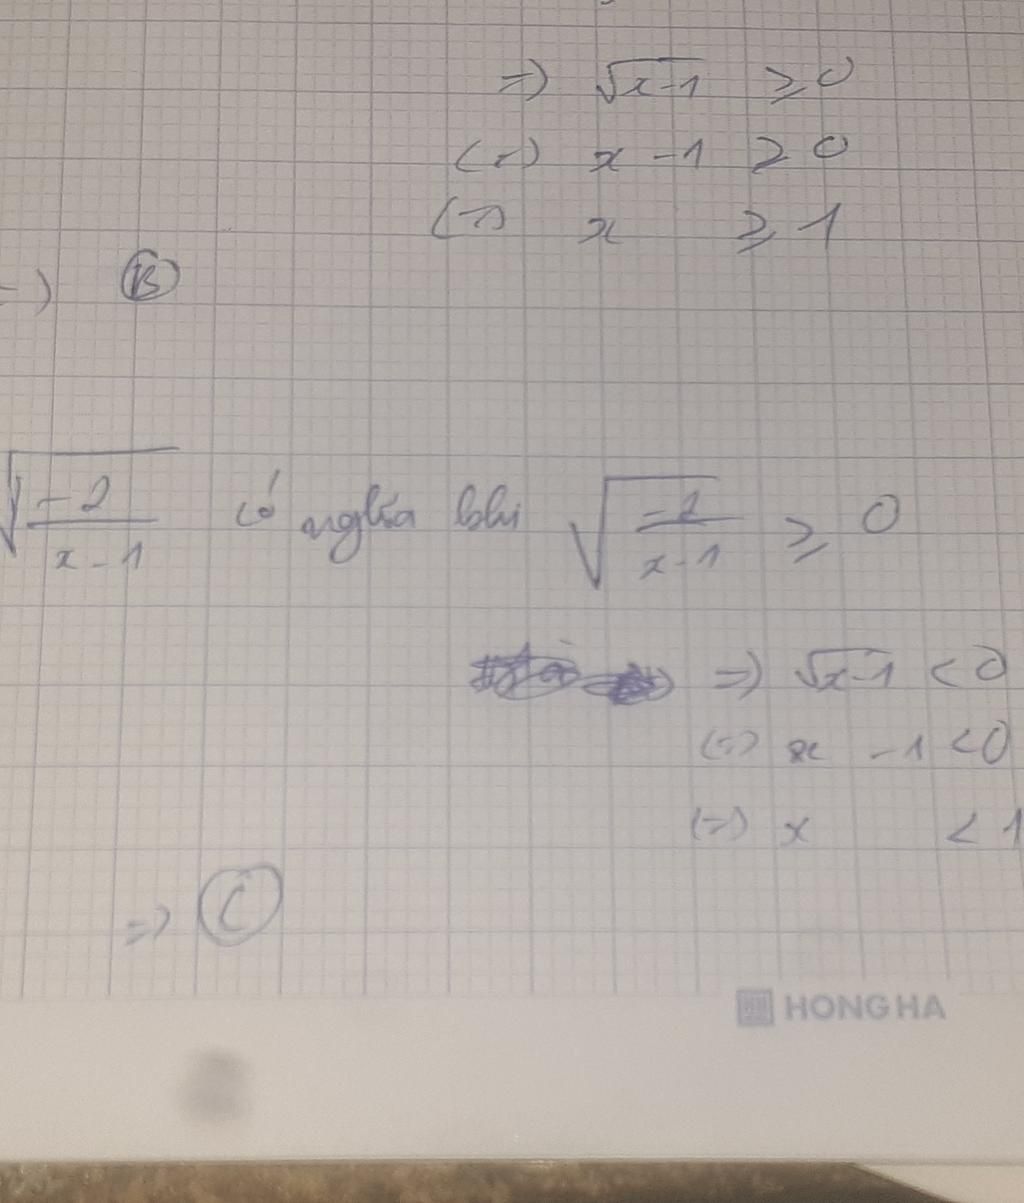 => √x-1 ≥ 0
(=) x - 1 ≥ 0
(=) x ≥ 1
=) B
√(-2/(x-1)) có nghĩa khi √(-2/(x-1)) ≥ 0
=) √x-1 < 0
(=) x - 1 < 0
(=) x < 1
=) C
HONG HA